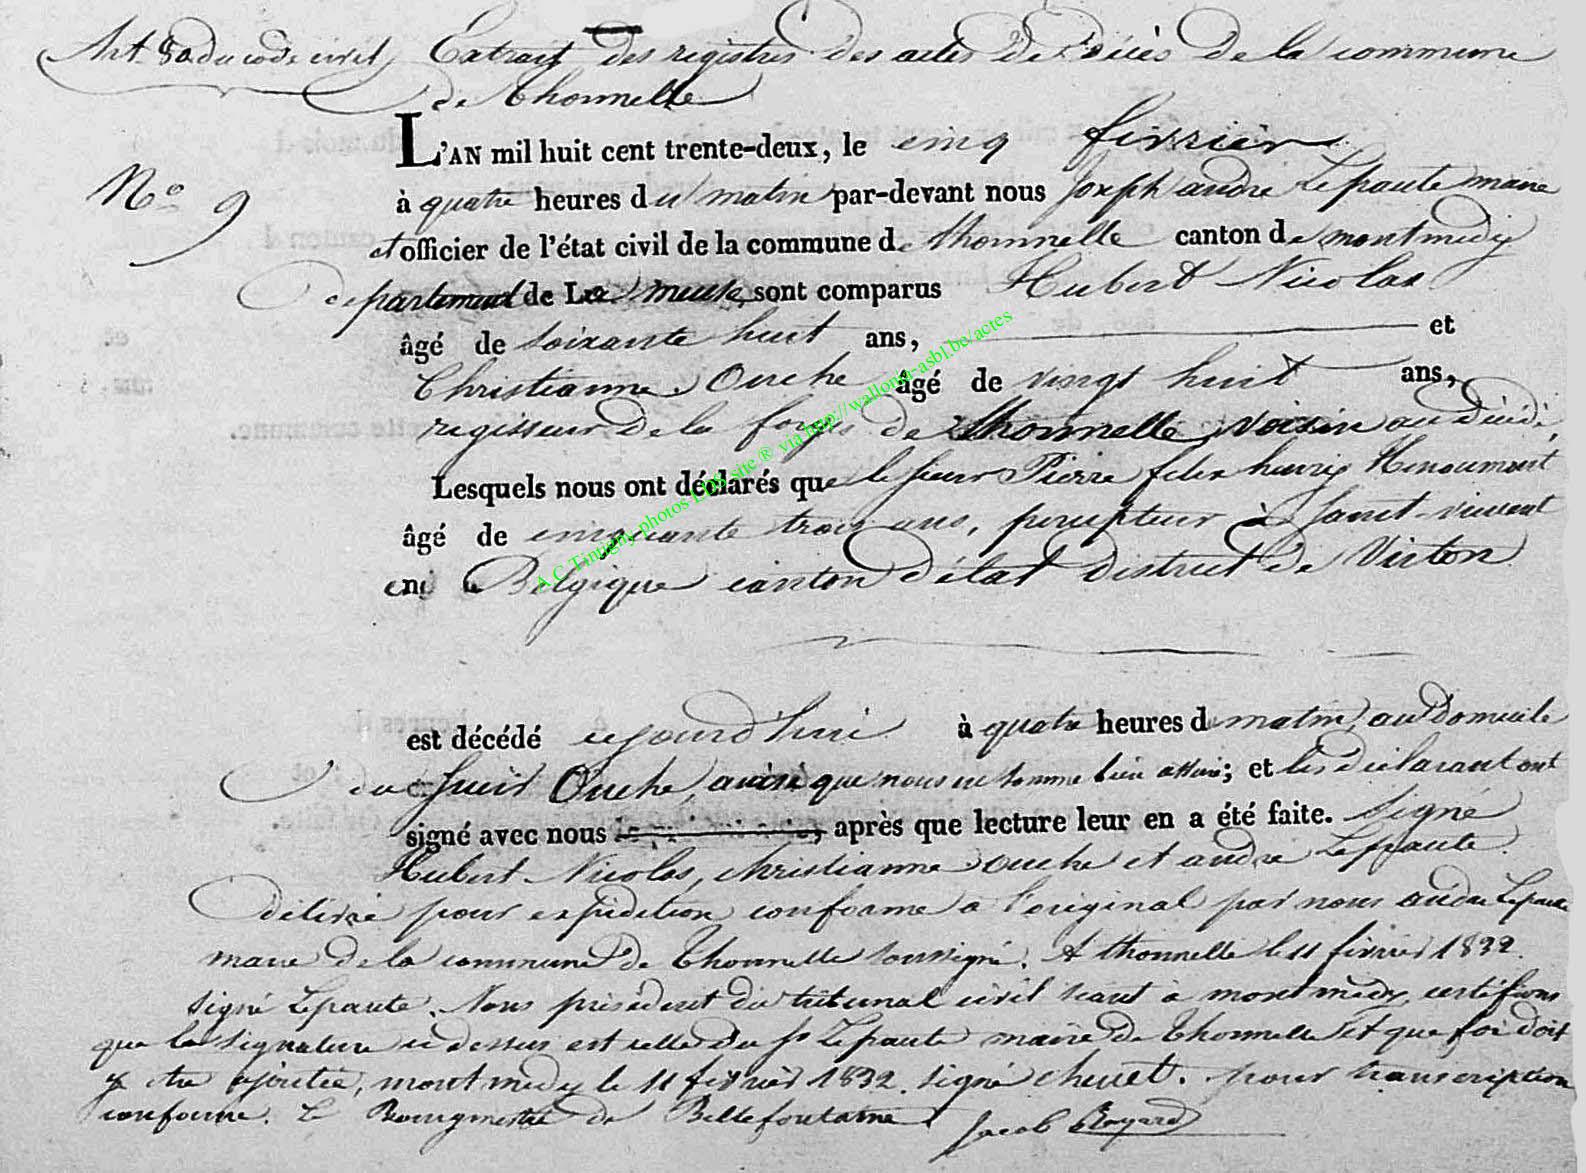 Art. 80 du code civil Extrait des registres des actes de décès de la commune
de Thonnelle
L'AN mil huit cent trente-deux, le cinq février
N° 9
à quatre heures du matin par-devant nous Joseph andré Lepaute maire
et officier de l'état civil de la commune de thonnelle canton de montmedy
departement de La meuse, sont comparus Hubert Nicolas
âgé de soixante huit ans, et
Christianne Ouche âgé de vingt huit ans,
regisseur de la forge de thonnelle voisin au décédé,
Lesquels nous ont déclarés que le sieur Pierre felix henry
âgé de cinquante trois ans, percepteur à Saint-vincent
en Belgique canton d'étal district de Virton
est décédé aujourd'hui à quatre heures de matin, au Domicile
du Ouche, ainsi que nous en somme bien assuré; et les déclarant ont
signé avec nous après que lecture leur en a été faite. signé
Hubert Nicolas, christianne ouche et andré Lepaute.
délivré pour expédition conforme a l'original par nous andré Lepaute
maire de la commune de Thonnelle soussigné. A thonnelle le 11 février 1832.
signé Lepaute. Nous président du tribunal civil séant à montmédy, certifions
que la signature ci dessus est celle du Sr Lepaute maire de Thonnelle et que foi doit
y être ajoutée, montmedy le 11 février 1832. signé chenet. pour transcription
conforme. Le Bourgmestre de Bellefontaine Jacob
A.C Tintigny photos LDS site ® via http://wallonia-asbl.be/actes